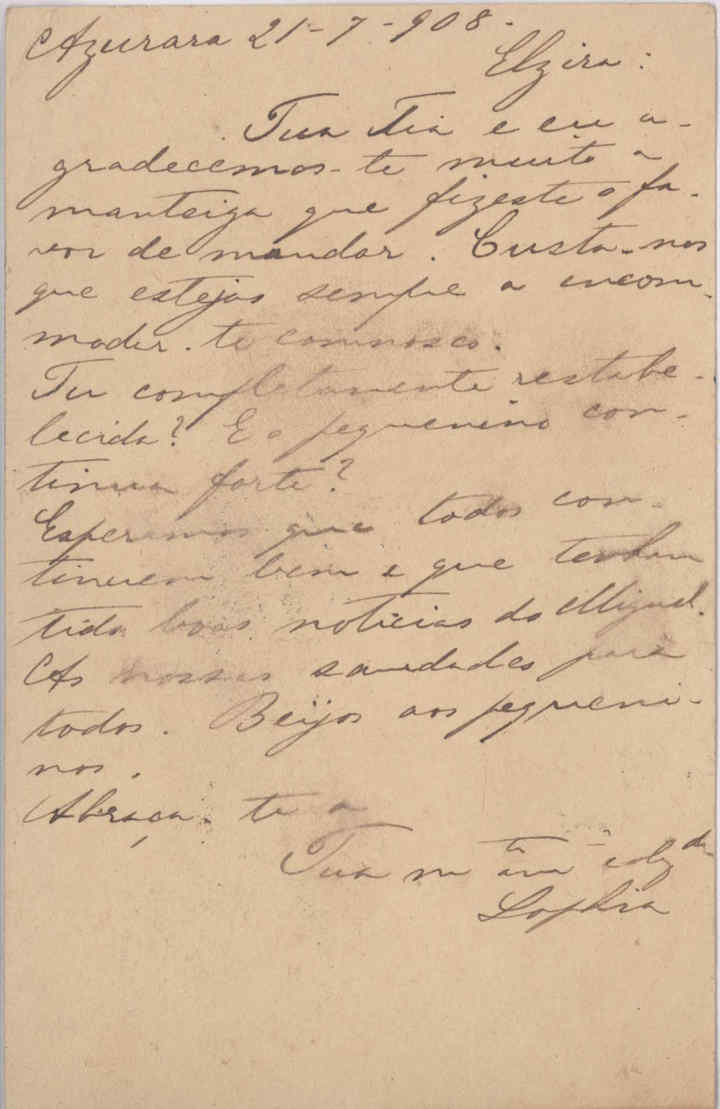 Azurara 21-7-908-
Elzira:
Tua Tia e eu a-
gradecemos-te muito a
manteiga que fizeste o fa-
vor de mandar. Custa-nos
que estejas sempre a incom-
modar-te comnosco.
Tu completamente restabe-
lecida? E o pequenino con-
tinua forte?
Esperamos que todos con-
tinuem bem e que tenham
tido boas noticias do Miguel.
As nossas saudades para
todos. Beijos aos pequeni-
nos.
Abraça-te a
Tua m^to
Sophia